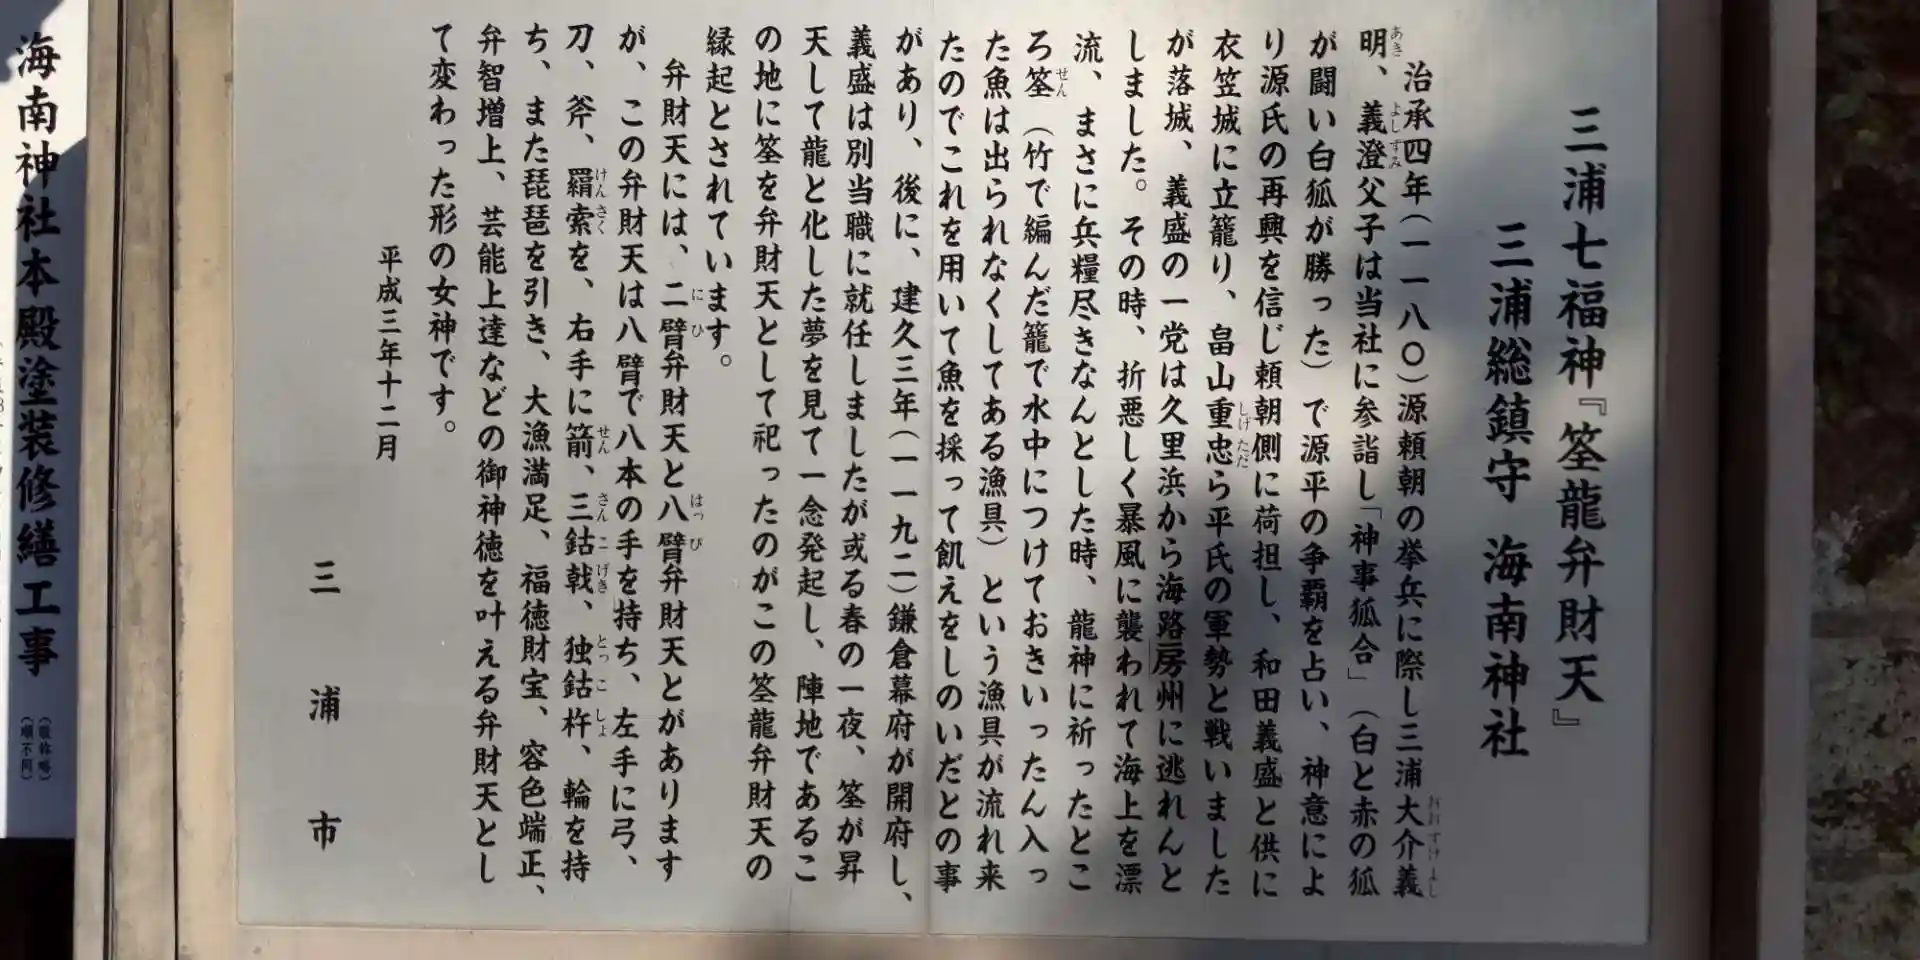 三浦七福神『筌龍弁財天』
三浦総鎮守 海南神社
治承四年(一一八〇)源頼朝の挙兵に際し三浦大介義
明、義澄父子は当社に参詣し「神事狐合」(白と赤の狐
が闘い白狐が勝った)で源平の争覇を占い、神意によ
り源氏の再興を信じ頼朝側に荷担し、和田義盛と供に
衣笠城に立籠り、畠山重忠ら平氏の軍勢と戦いました
が落城、義盛の一党は久里浜から海路房州に逃れんと
しました。その時、折悪しく暴風に襲われて海上を漂
流、まさに兵糧尽きなんとした時、龍神に祈ったとこ
ろ筌(竹で編んだ籠で水中につけておきいったん入っ
た魚は出られなくしてある漁具)という漁具が流れ来
たのでこれを用いて魚を採って飢えをしのいだとの事
があり、後に、建久三年(一一九二)鎌倉幕府が開府し、
義盛は別当職に就任しましたが或る春の一夜、筌が昇
天して龍と化した夢を見て一念発起し、陣地であるこ
の地に筌を弁財天として祀ったのがこの筌龍弁財天の
縁起とされています。
弁財天には、二臂弁財天と八臂弁財天とがあります
が、この弁財天は八臂で八本の手を持ち、左手に弓、
刀、斧、羂索を、右手に箭、三鈷戟、独鈷杵、輪を持
ち、また琵琶を引き、大漁満足、福徳財宝、容色端正、
弁智増上、芸能上達などの御神徳を叶える弁財天とし
て変わった形の女神です。
平成三年十二月
三浦市
海南神社本殿塗装修繕工事
(敬称略)
(順不同)